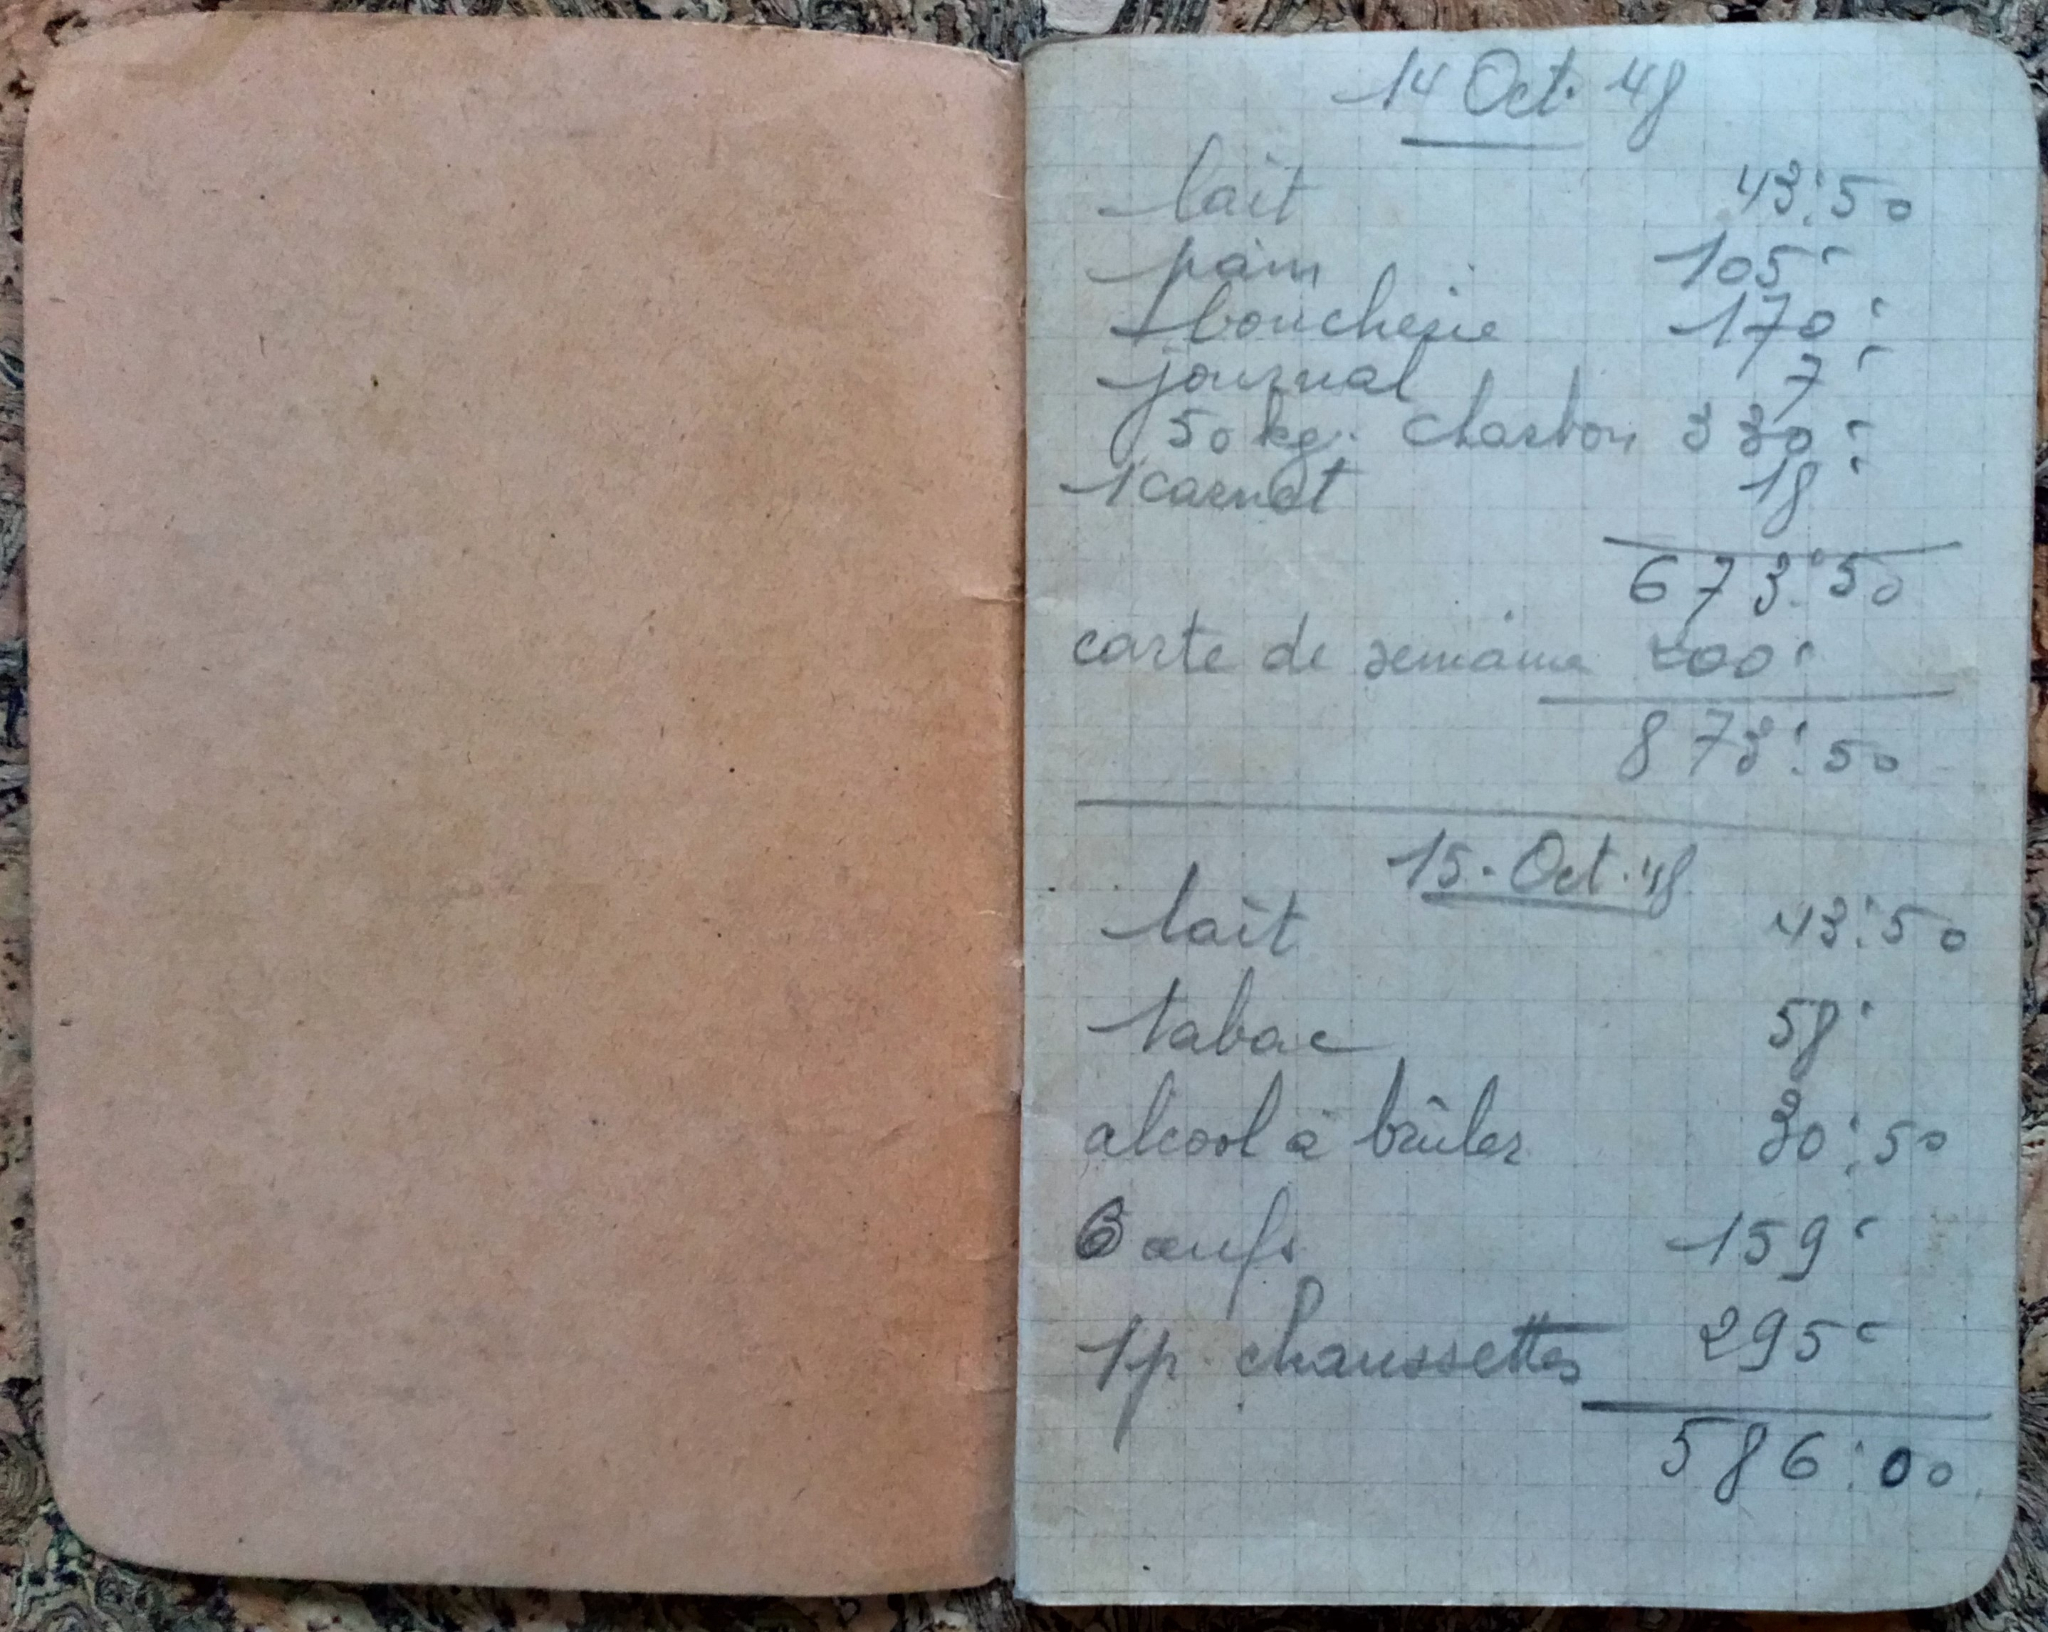 14 Oct. 48
lait 43:50
pain 105"
boucherie 170"
journal 7"
50 kg. charbon 330"
1 carnet 18"
673:50
carte de semaine 200"
873:50
15. Oct. 48
lait 43:50
tabac 58"
alcool à brûler 30:50
6 œufs 159"
1 p. chaussettes 295"
586:00